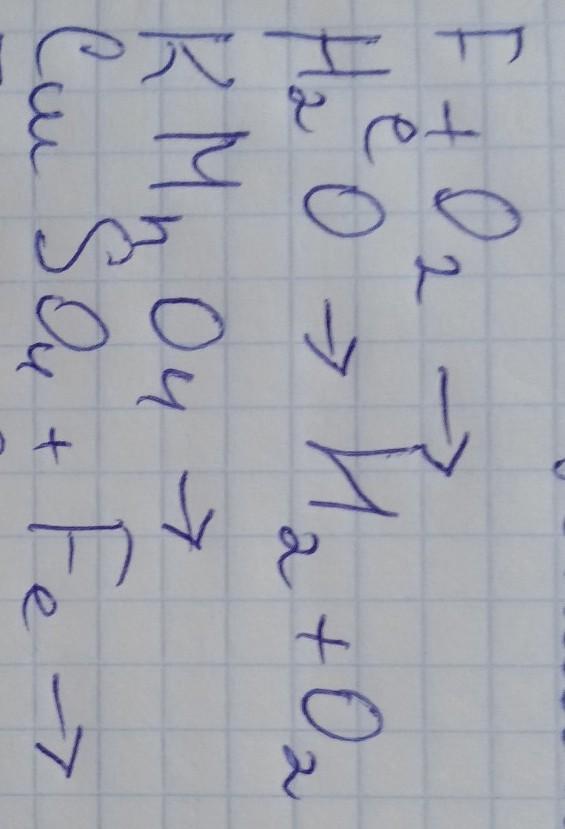 Fe + O₂ →
H₂O → H₂ + O₂
KMnO₄ →
CuSO₄ + Fe →